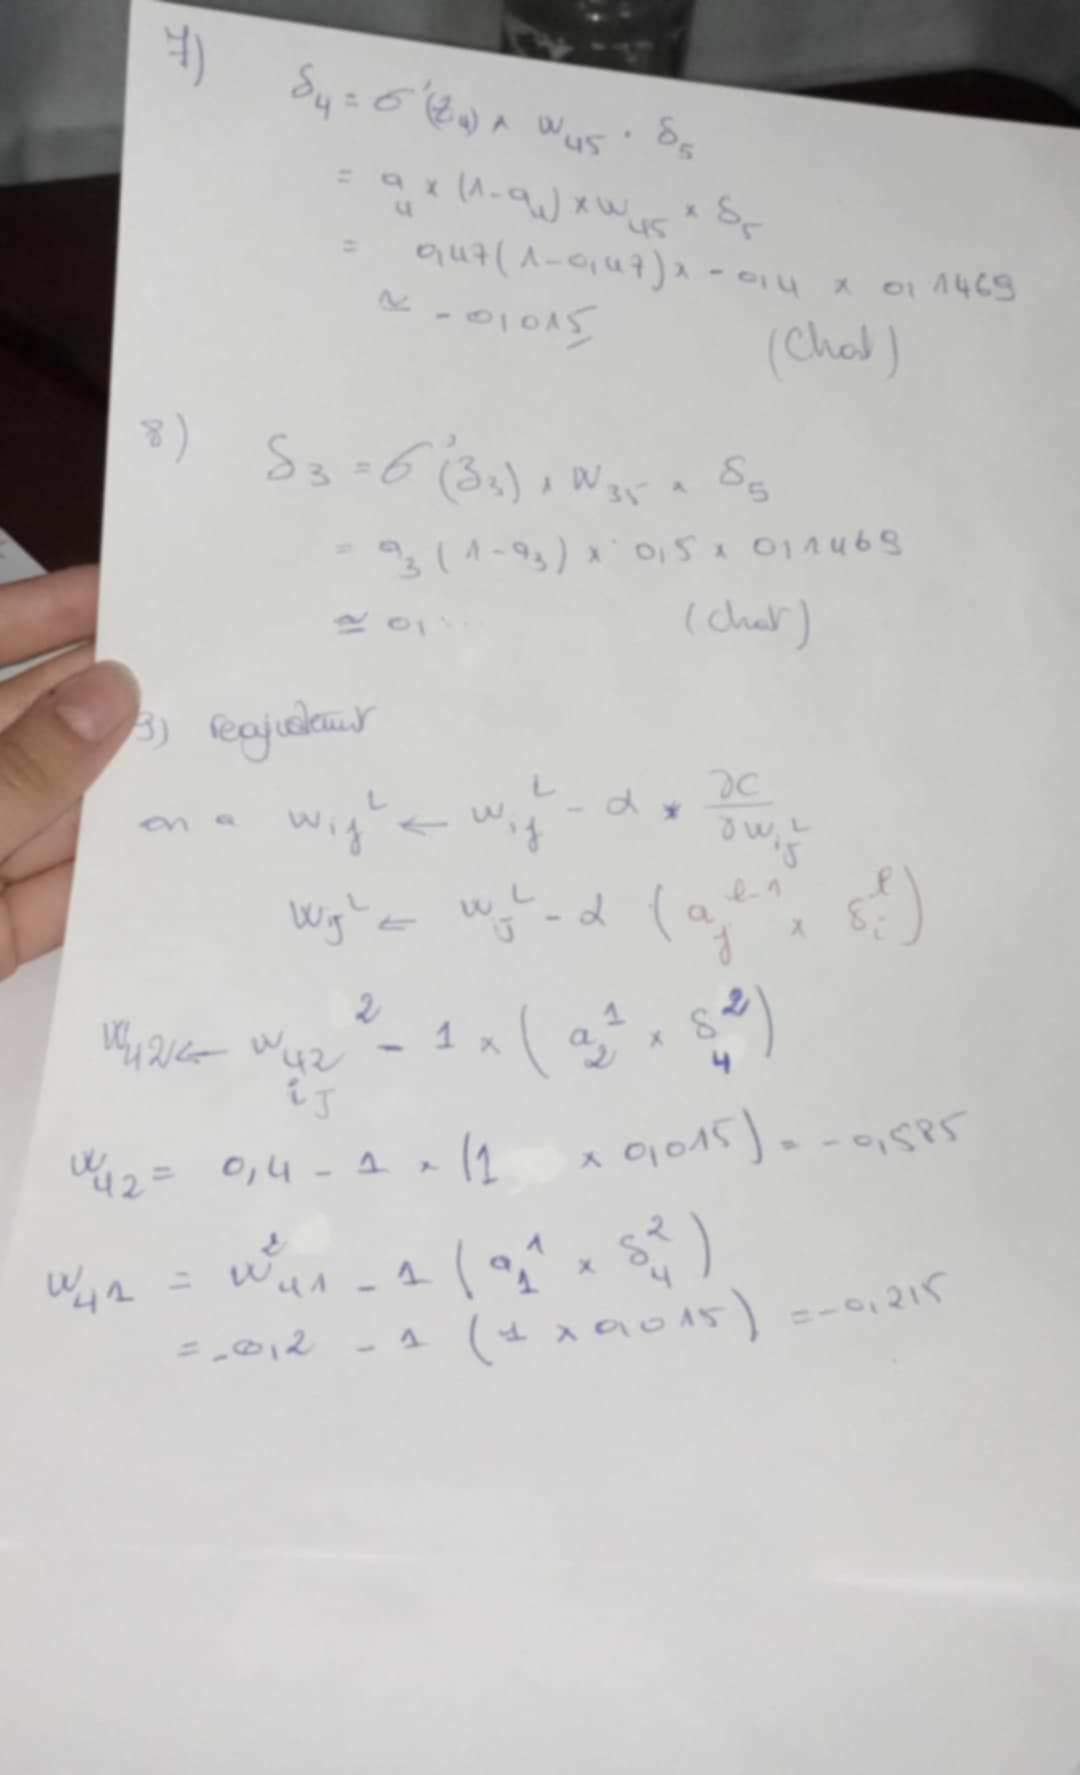 7)
δ₄ = σ'(z₄) × w₄₅ · δ₅
= a₄ × (1-a₄) × w₄₅ × δ₅
= 0,47(1-0,47) × -0,4 × 0,1469
≃ -0,015
(Chat)
8)
δ₃ = σ'(z₃) × w₃₅ × δ₅
= a₃(1-a₃) × 0,5 × 0,1469
≅ 0,...
(Chat)
9)
on a wᵢⱼᴸ ← wᵢⱼᴸ - α * ∂C/∂wᵢⱼᴸ
wᵢⱼᴸ ← wᵢⱼᴸ - α (aⱼˡ⁻¹ × δᵢˡ)
w₄₂ ← w₄₂² - 1 × (a₂¹ × δ₄²)
i J
w₄₂ = 0,4 - 1 × (1 × 0,015) = -0,585
w₄₁ = w₄₁² - 1 (a₁¹ × δ₄²)
= -0,2 - 1 (1 × 0,015) = -0,215